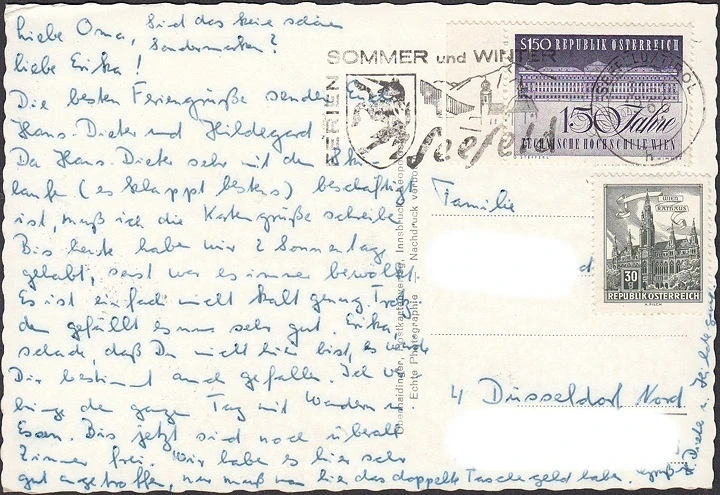 Liebe Oma, Sind das keine schöne
Sondermarken?
liebe Erika!
Die besten Feriengrüße senden Euch
Hans-Dieter und Hildegard
Da Hans-Dieter sehr mit dem Ski
laufen (es klappt bestens) beschäftigt
ist, muß ich die Kartengrüße schreiben
Bis heute haben wir 2 Sonnentage
gehabt, sonst war es immer bewölkt.
Es ist einfach nicht kalt genug. Trotz
dem gefällt es uns sehr gut. Erika
schade, daß Du nicht hier bist, es würde
Dir bestimmt auch gefallen. Ich ver
bringe den ganzen Tag mit Wandern u.
Essen. Bis jetzt sind noch überall
Zimmer frei. Wir haben es hier sehr
gut angetroffen, nur muß man hier das doppelte Taschengeld haben.
FERIEN
SOMMER und WINTER
Seefeld
S1.50 REPUBLIK ÖSTERREICH
150 Jahre
TECHNISCHE HOCHSCHULE WIEN
TIROL
WIEN
RATHAUS
30 g
REPUBLIK ÖSTERREICH
A. PILCH
Postkartenverlag, Innsbruck
Echte Photographie – Nachdruck
Familie
4 Düsseldorf Nord